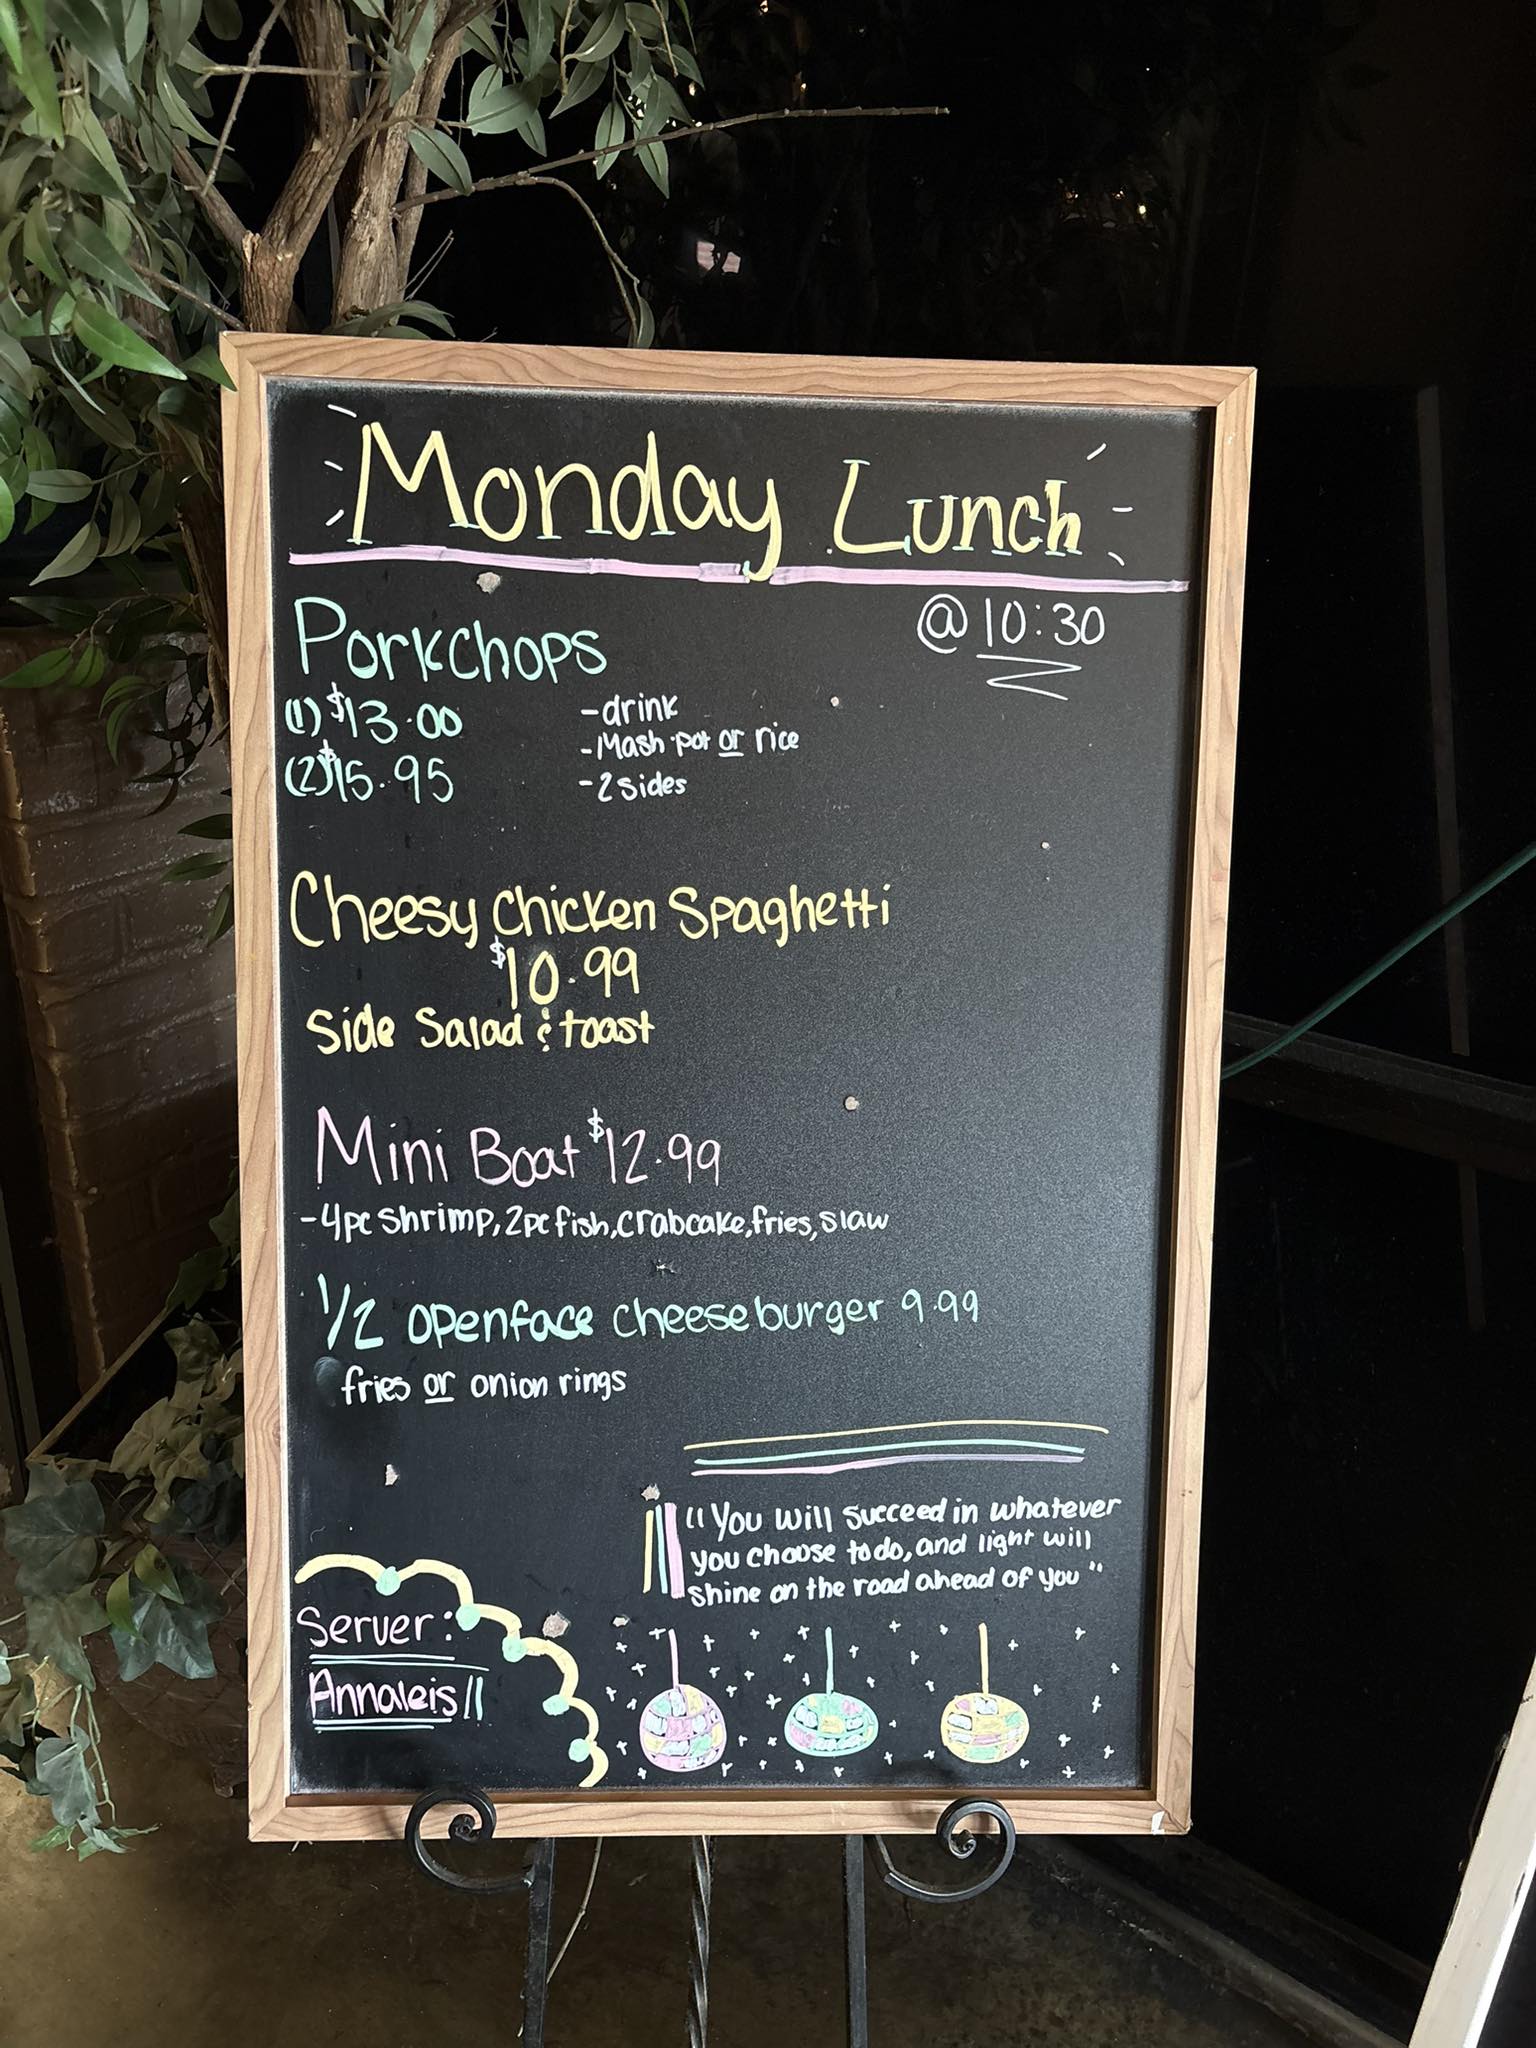 Monday Lunch
@ 10:30
Porkchops
(1) $13.00
(2) $15.95
- drink
- Mash pot or rice
- 2 sides
Cheesy Chicken Spaghetti
$10.99
Side Salad & toast
Mini Boat $12.99
- 4pc shrimp, 2pc fish, crabcake, fries, slaw
1/2 openface cheeseburger 9.99
fries or onion rings
"You will succeed in whatever
you choose to do, and light will
shine on the road ahead of you"
Server:
Annaleis!!